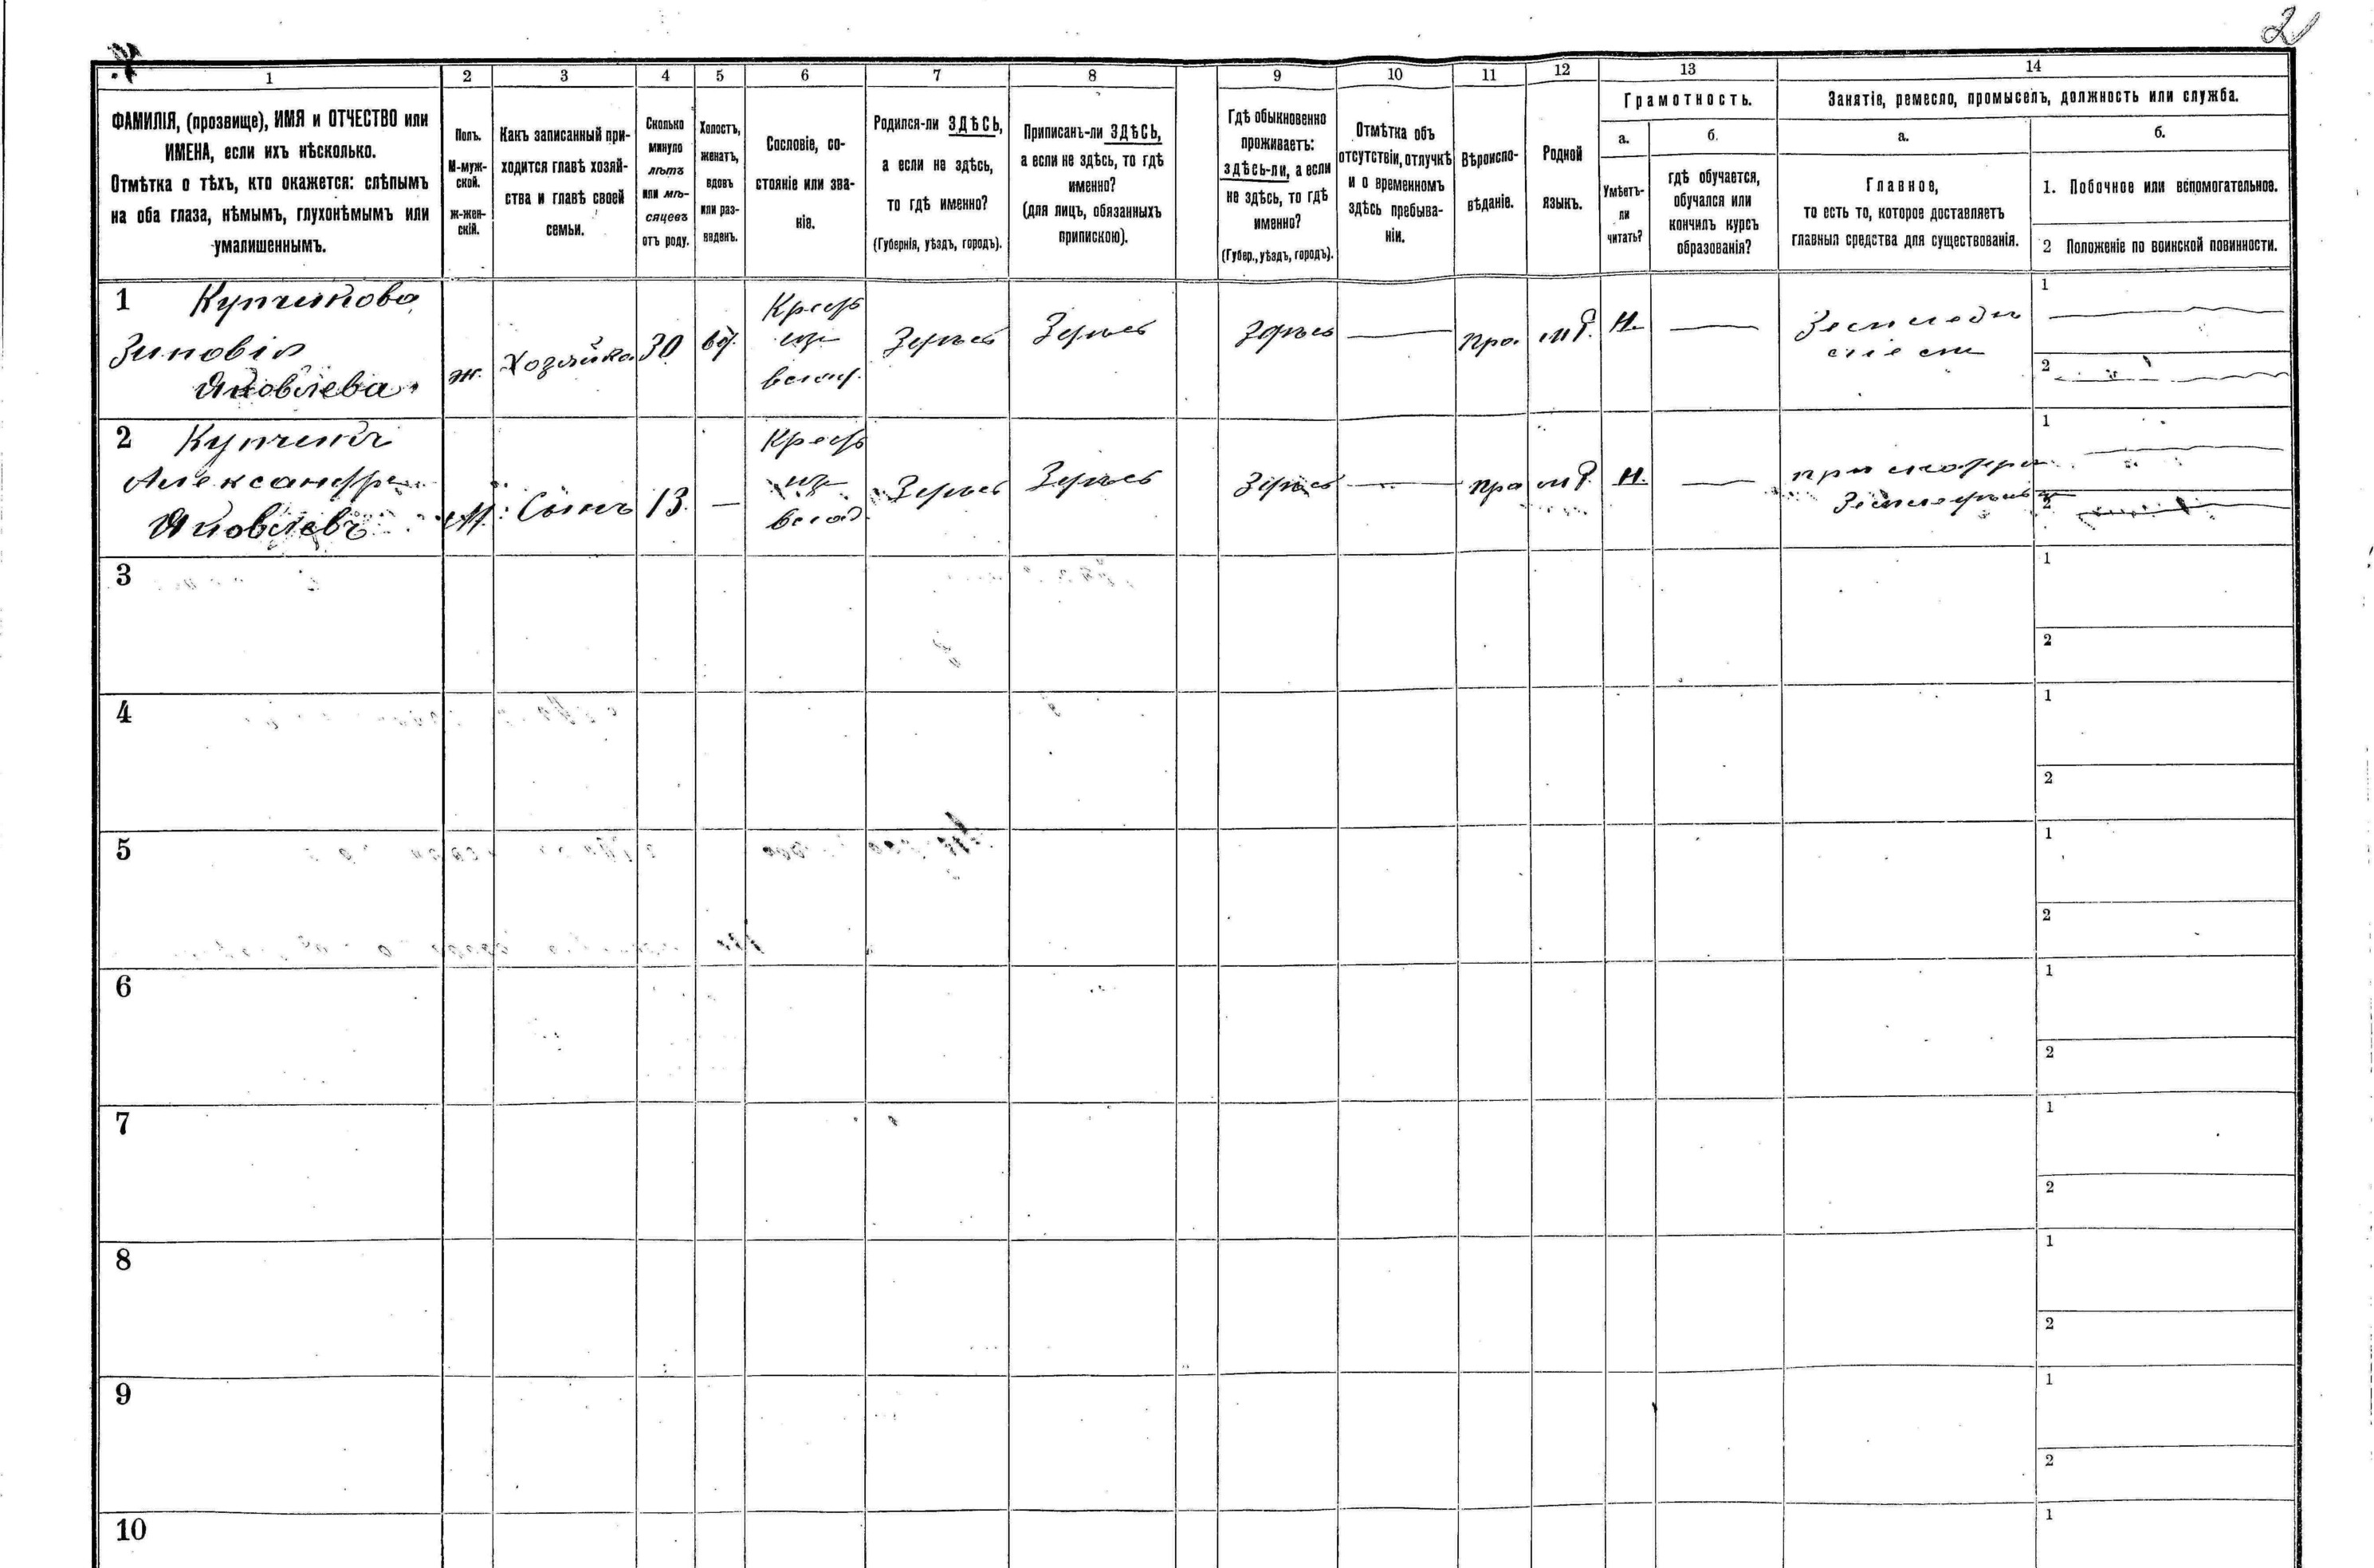 2
1 2 3 4 5 6 7 8 9 10 11 12 13 14
ФАМИЛІЯ, (прозвище), ИМЯ и ОТЧЕСТВО или
ИМЕНА, если ихъ нѣсколько.
Отмѣтка о тѣхъ, кто окажется: слѣпымъ
на оба глаза, нѣмымъ, глухонѣмымъ или
умалишеннымъ.
Полъ.
М-муж-
ской.
Ж-жен-
скій.
Какъ записанный при-
ходится главѣ хозяй-
ства и главѣ своей
семьи.
Сколько
минуло
лѣтъ
или мѣ-
сяцевъ
отъ роду.
Холостъ,
женатъ,
вдовъ
или раз-
веденъ.
Сословіе, со-
стояніе или зва-
ніе.
Родился-ли ЗДѢСЬ,
а если не здѣсь,
то гдѣ именно?
(Губернія, уѣздъ, городъ).
Приписанъ-ли ЗДѢСЬ,
а если не здѣсь, то гдѣ
именно?
(для лицъ, обязанныхъ
припискою).
Гдѣ обыкновенно
проживаетъ:
здѣсь-ли, а если
не здѣсь, то гдѣ
именно?
(Губер., уѣздъ, городъ).
Отмѣтка объ
отсутствіи, отлучкѣ
и о временномъ
здѣсь пребыва-
ніи.
Вѣроиспо-
вѣданіе.
Родной
языкъ.
Грамотность.
а.
Умѣетъ-
ли
читать?
б.
гдѣ обучается,
обучался или
кончилъ курсъ
образованія?
Занятіе, ремесло, промыселъ, должность или служба.
а.
Главное,
то есть то, которое доставляетъ
главныя средства для существованія.
б.
1. Побочное или вспомогательное.
2 Положеніе по воинской повинности.
1
Зиновія
Яковлева
ж.
Хозяйка
30
вд.
Здѣсь
Здѣсь
Здѣсь
Пра.
Н.
1
2
2
Александръ
Яковлевъ
М.
Сынъ
13.
Здѣсь
Здѣсь
Здѣсь
пра
Н.
1
2
3
1
2
4
1
2
5
1
2
6
1
2
7
1
2
8
1
2
9
1
2
10
1